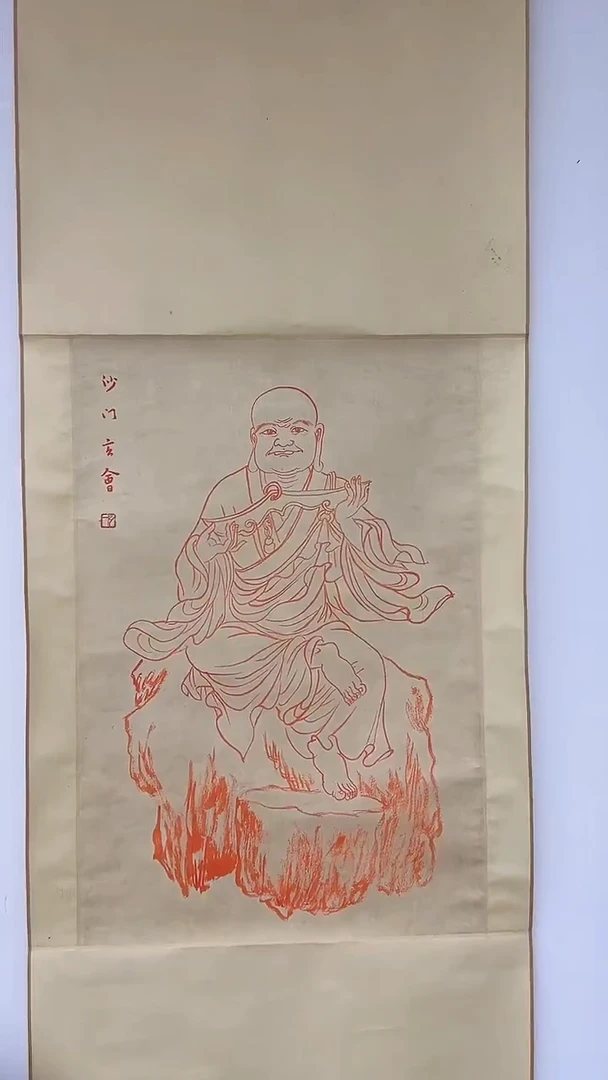 沙门玄會